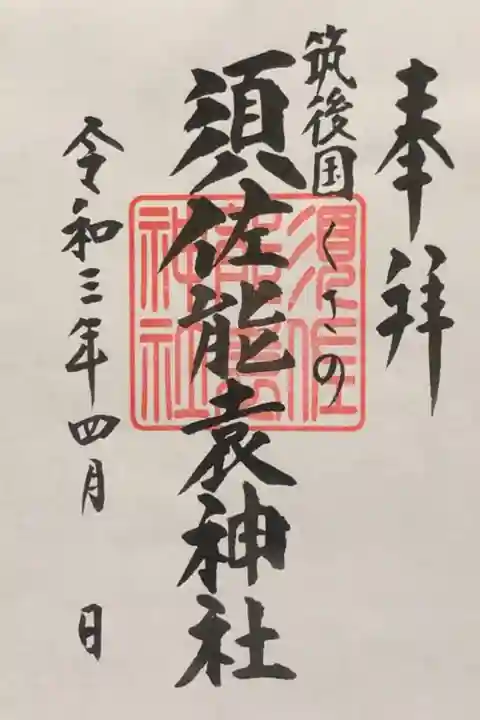 奉拝
筑後国くさの
須佐能袁神社
令和三年四月 日
須佐
能袁
神社